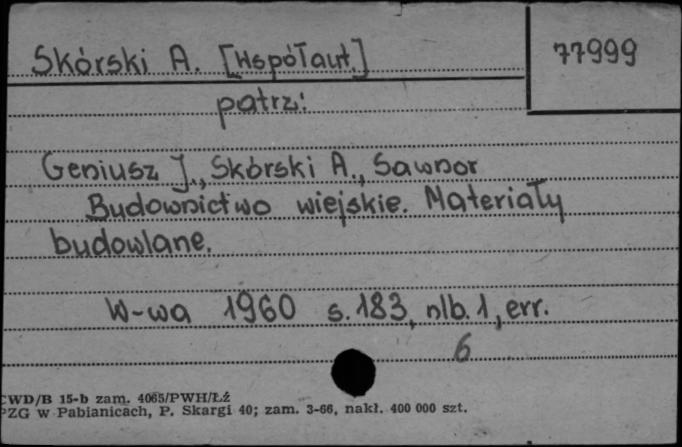 Skórski A. [Współaut.] 77999
patrz:
Geniusz J., Skórski A., Sawnor
Budownictwo wiejskie. Materiały
budowlane.
W-wa 1960 s. 183, nlb. 1, err.
6
CWD/B 15-b zam. 4065/PWH/Łź
PZG w Pabianicach, P. Skargi 40; zam. 3-66, nakł. 400 000 szt.